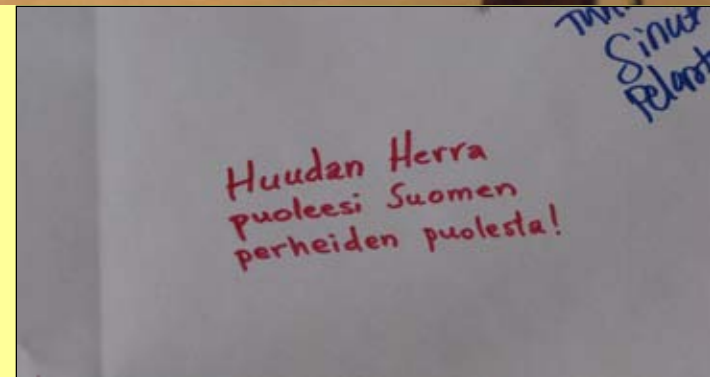 Sinut
Huudan Herra
puoleesi Suomen
perheiden puolesta!